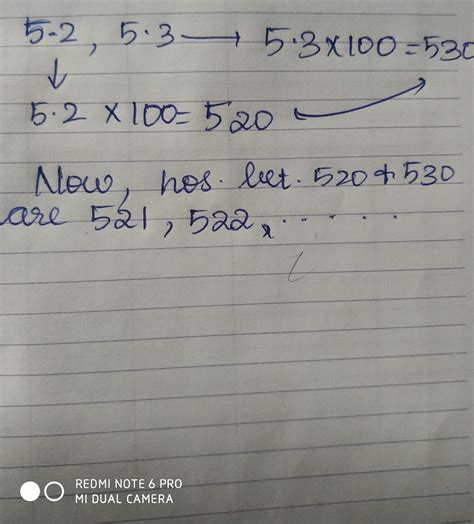 5·2, 5·3 → 5·3×100=530
↓
5·2 ×100= 520
Now, nos. bet. 520 & 530
are 521, 522, ......
REDMI NOTE 6 PRO
MI DUAL CAMERA